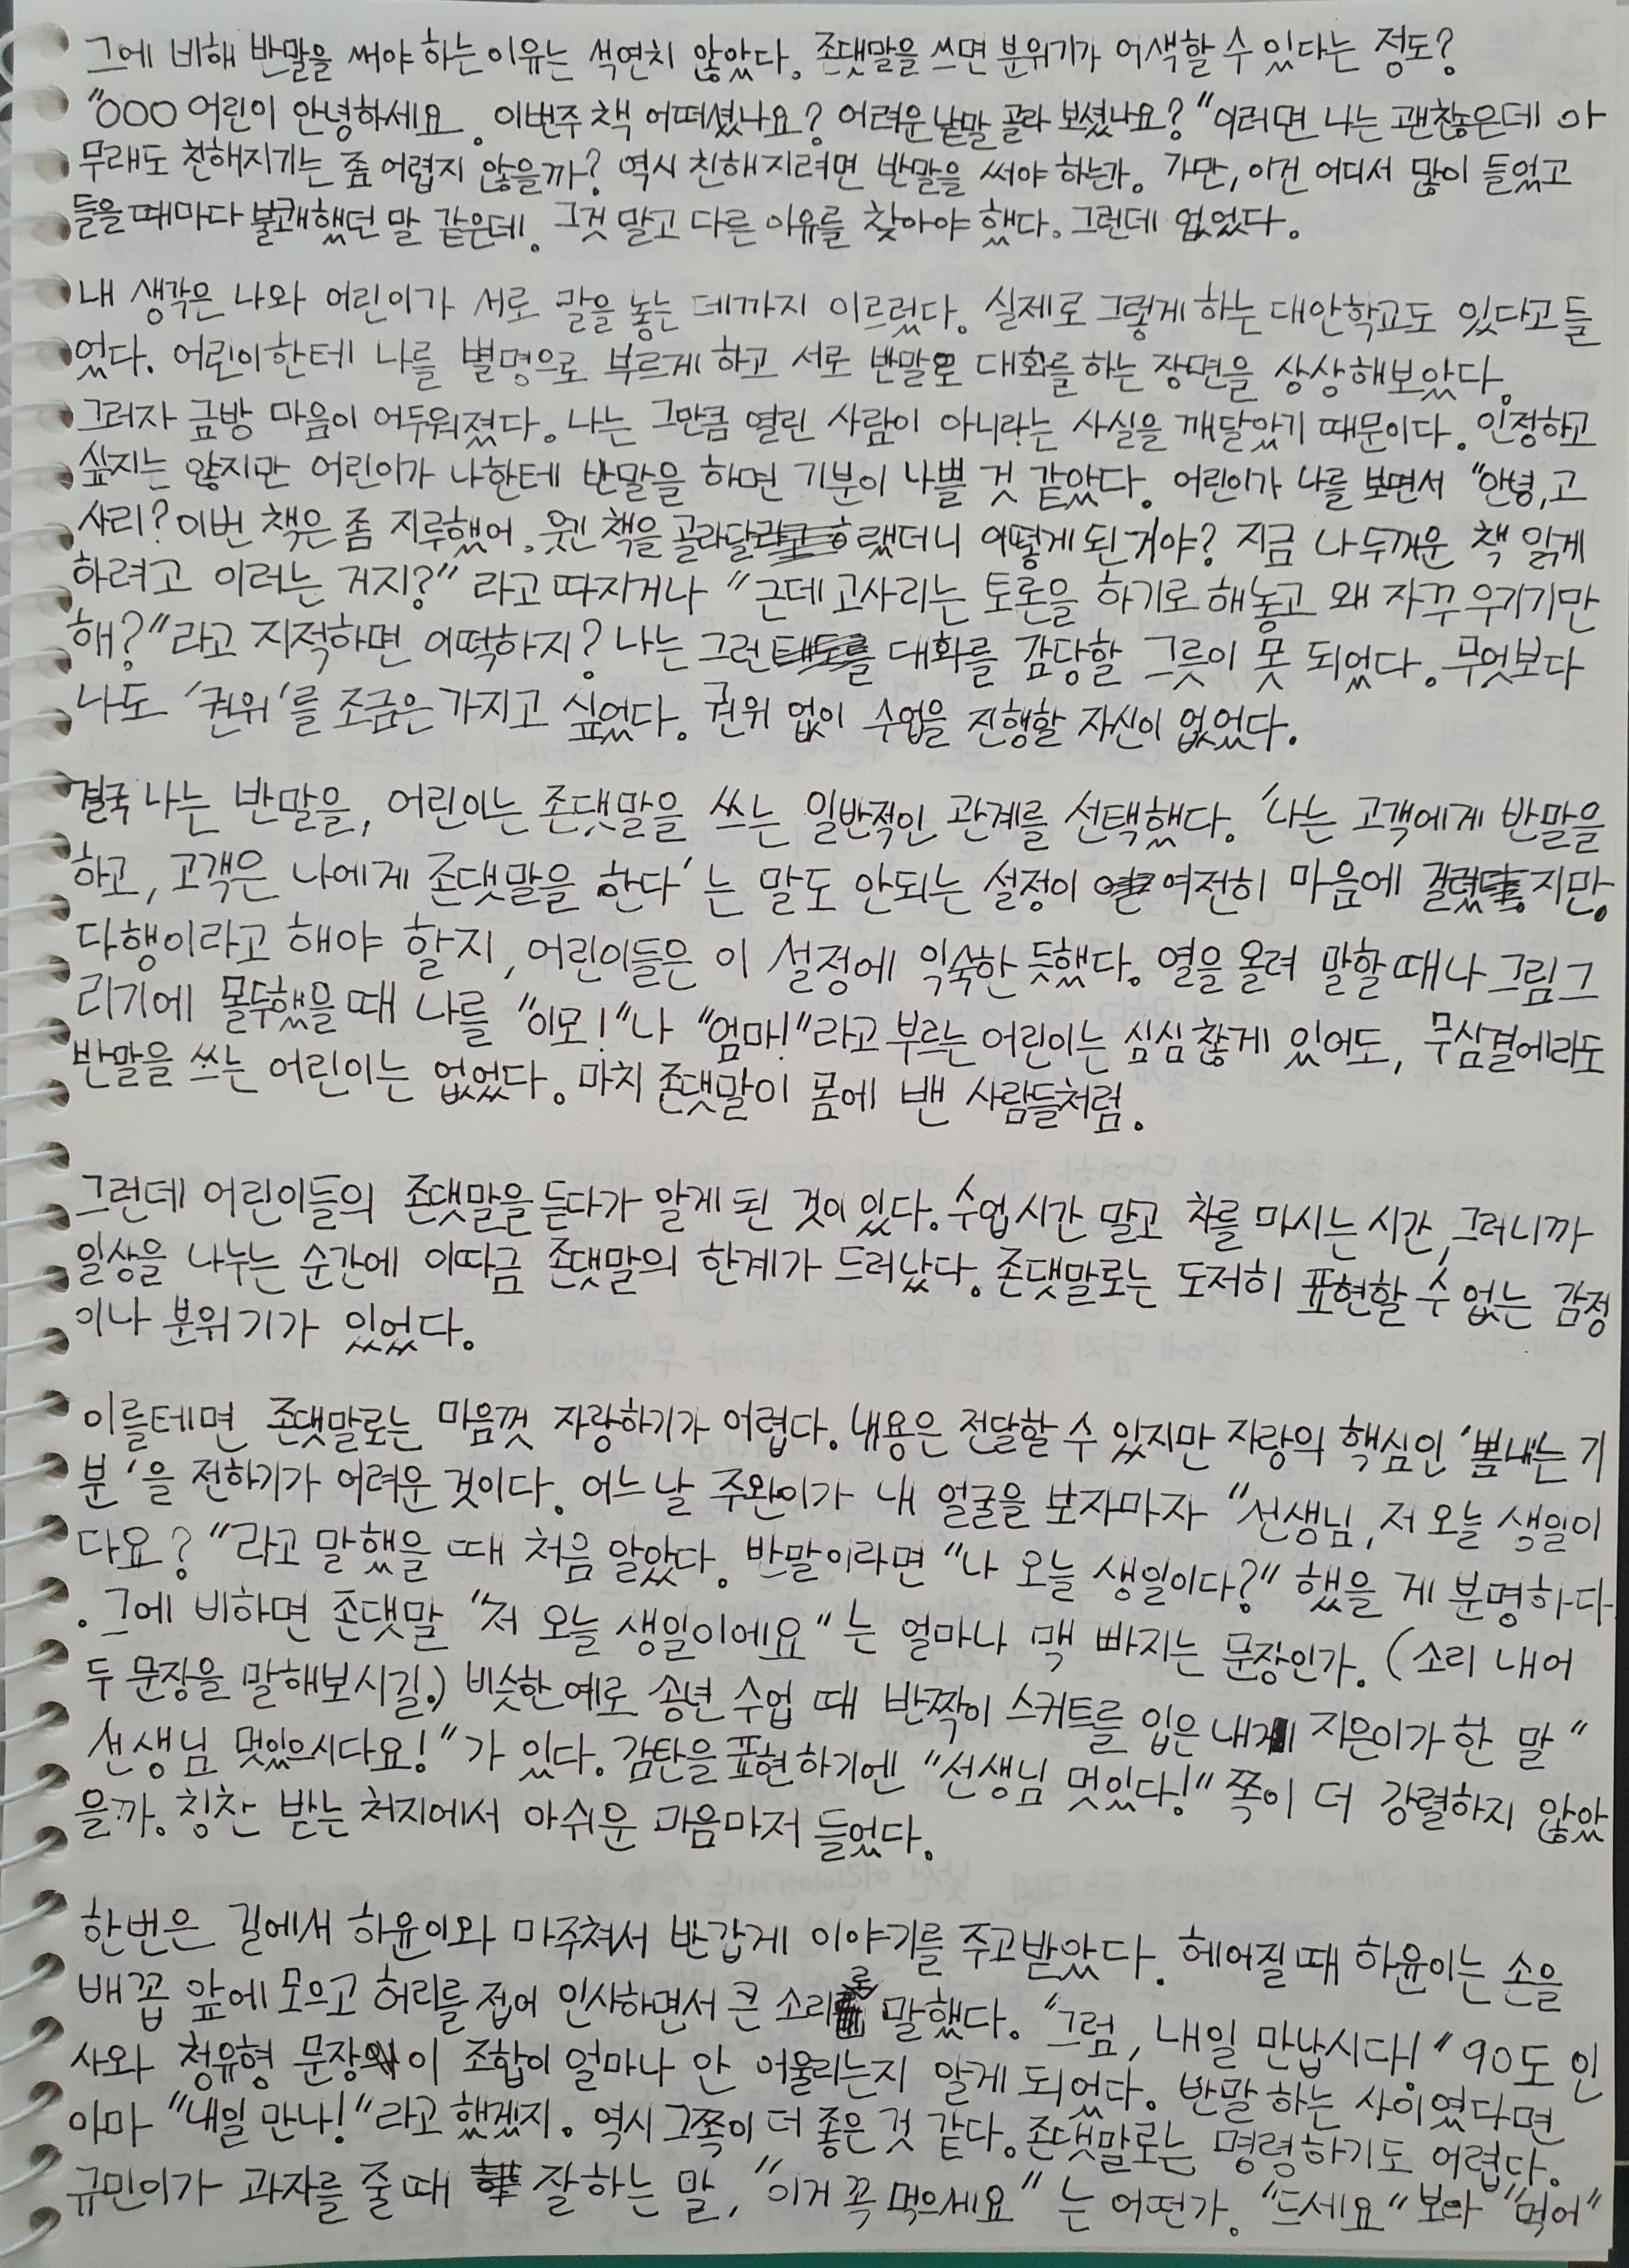 그에 비해 반말을 써야 하는 이유는 석연치 않았다. 존댓말을 쓰면 분위기가 어색할 수 있다는 정도?
"OOO 어린이 안녕하세요. 이번주 책 어떠셨나요? 어려운 낱말 골라 보셨나요?" 이러면 나는 괜찮은데 아
무래도 친해지기는 좀 어렵지 않을까? 역시 친해지려면 반말을 써야 하는가. 가만, 이건 어디서 많이 들었고
들을 때마다 불쾌했던 말 같은데. 그것 말고 다른 이유를 찾아야 했다. 그런데 없었다.
내 생각은 나와 어린이가 서로 말을 놓는 데까지 이르렀다. 실제로 그렇게 하는 대안학교도 있다고 들
었다. 어린이한테 나를 별명으로 부르게 하고 서로 반말로 대화를 하는 장면을 상상해보았다.
그러자 금방 마음이 어두워졌다. 나는 그만큼 열린 사람이 아니라는 사실을 깨달았기 때문이다. 인정하고
싶지는 않지만 어린이가 나한테 반말을 하면 기분이 나쁠 것 같았다. 어린이가 나를 보면서 "안녕, 고
사리? 이번 책은 좀 지루했어. 웃긴 책을 골라달라 했더니 어떻게 된 거야? 지금 나 두꺼운 책 읽게
하려고 이러는 거지?" 라고 따지거나 "근데 고사리는 토론을 하기로 해놓고 왜 자꾸 우기기만
해?"라고 지적하면 어떡하지? 나는 그런 대화를 감당할 그릇이 못 되었다. 무엇보다
나도 '권위'를 조금은 가지고 싶었다. 권위 없이 수업을 진행할 자신이 없었다.
결국 나는 반말을, 어린이는 존댓말을 쓰는 일반적인 관계를 선택했다. '나는 고객에게 반말을
하고, 고객은 나에게 존댓말을 한다'는 말도 안되는 설정이 여전히 마음에 걸렸지만.
다행이라고 해야 할지, 어린이들은 이 설정에 익숙한 듯했다. 열을 올려 말할 때나 그림 그
리기에 몰두했을 때 나를 "이모!"나 "엄마!"라고 부르는 어린이는 심심찮게 있어도, 무심결에라도
반말을 쓰는 어린이는 없었다. 마치 존댓말이 몸에 밴 사람들처럼.
그런데 어린이들의 존댓말을 듣다가 알게 된 것이 있다. 수업시간 말고 차를 마시는 시간, 그러니까
일상을 나누는 순간에 이따금 존댓말의 한계가 드러났다. 존댓말로는 도저히 표현할 수 없는 감정
이나 분위기가 있었다.
이를테면 존댓말로는 마음껏 자랑하기가 어렵다. 내용은 전달할 수 있지만 자랑의 핵심인 '뽐내는 기
분'을 전하기가 어려운 것이다. 어느 날 주완이가 내 얼굴을 보자마자 "선생님, 저 오늘 생일이
다요?"라고 말했을 때 처음 알았다. 반말이라면 "나 오늘 생일이다?" 했을 게 분명하다
. 그에 비하면 존댓말 "저 오늘 생일이에요"는 얼마나 맥 빠지는 문장인가. (소리 내어
두 문장을 말해보시길.) 비슷한 예로 송년 수업 때 반짝이 스커트를 입은 내게 지은이가 한 말 "
선생님 멋있으시다요!"가 있다. 감탄을 표현하기엔 "선생님 멋있다!" 쪽이 더 강렬하지 않았
을까. 칭찬 받는 처지에서 아쉬운 마음마저 들었다.
한번은 길에서 하윤이와 마주쳐서 반갑게 이야기를 주고받았다. 헤어질 때 하윤이는 손을
배꼽 앞에 모으고 허리를 접어 인사하면서 큰 소리로 말했다. "그럼, 내일 만납시다!" 90도 인
사와 청유형 문장의 이 조합이 얼마나 안 어울리는지 알게 되었다. 반말 하는 사이였다면
아마 "내일 만나!"라고 했겠지. 역시 그쪽이 더 좋은 것 같다. 존댓말로는 명령하기도 어렵다.
규민이가 과자를 줄 때 잘 하는 말, "이거 꼭 먹으세요"는 어떤가. "드세요"보다 "먹어"